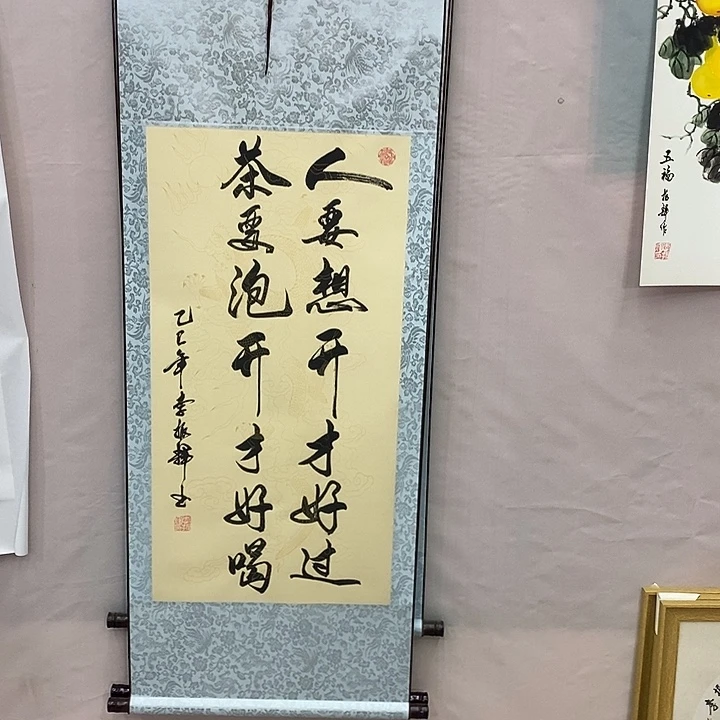 人要想开才好过
茶要泡开才好喝
乙巳年李振铎书
五福